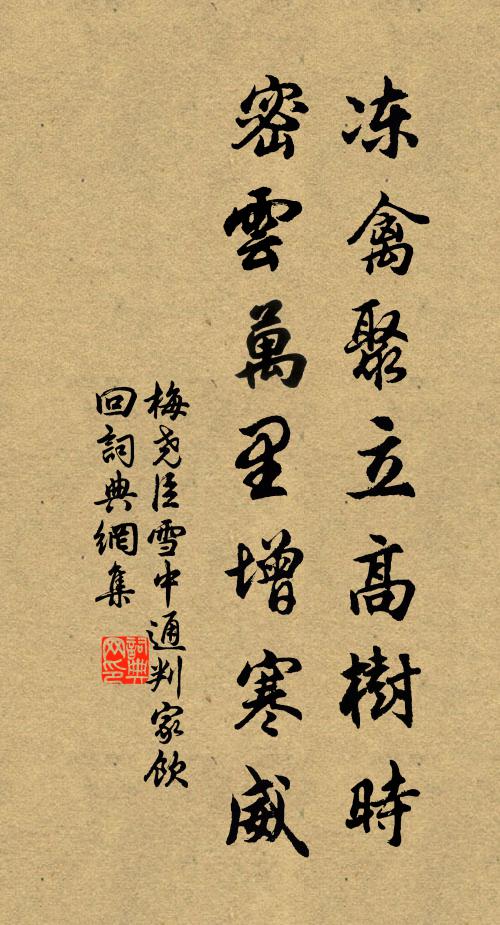 冻禽聚立高樹時
密雲萬里增寒威
梅尧臣雪中通判家飲
回詞典網集
詞典
网印